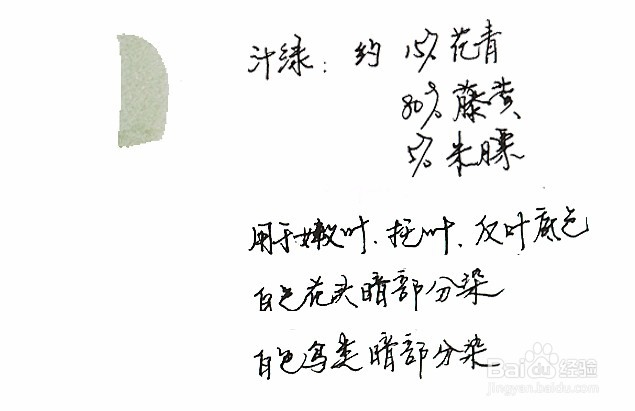 汁绿：约 15% 花青
80% 藤黄
5% 朱膘
用于嫩叶、托叶、反叶底色
白色花头暗部分染
白色鸟类暗部分染
Baidu经验
jingyan.baidu.com